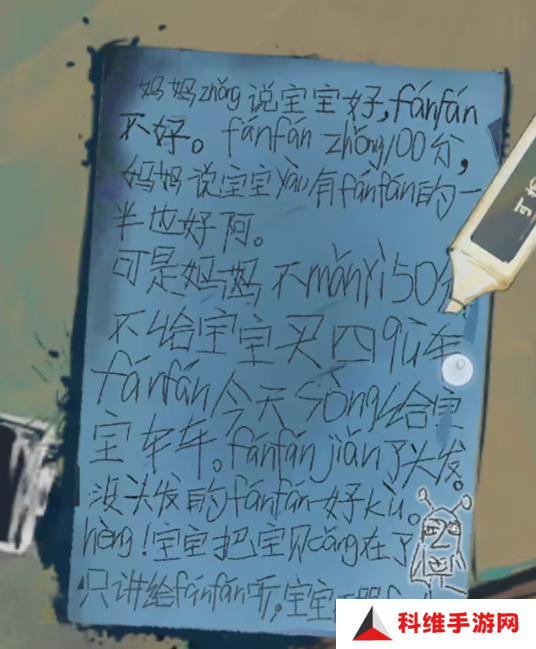 妈妈zhǒng说宝宝好,fánfán
不好。fánfán zhǒng100分,
妈妈说宝宝yào有fánfán的一
半也好阿。
可是妈妈不mǎnyì50分
不给宝宝买四qū车
fánfán今天sòng给宝
宝车车。fánfánjiǎn了头发。
没头发的fánfán好kù。
hèng!宝宝把宝贝cáng在了
只讲给fánfán听,宝宝
科维手游网